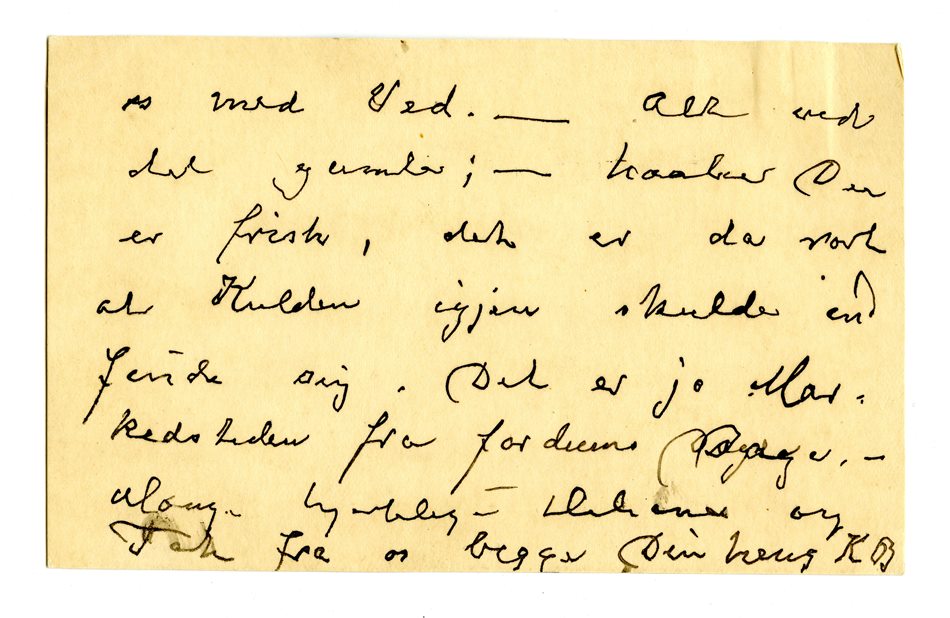 os med Ved. — Alt ved
det gamle; — haaber Du
er frisk, det er da rart
at Kulden igjen skulde ind
finde sig. Det er jo Mar-
kedstiden fra fordums Dage. —
Mange hjertelig — Hilsener og
Tak fra os begge Din heng KB